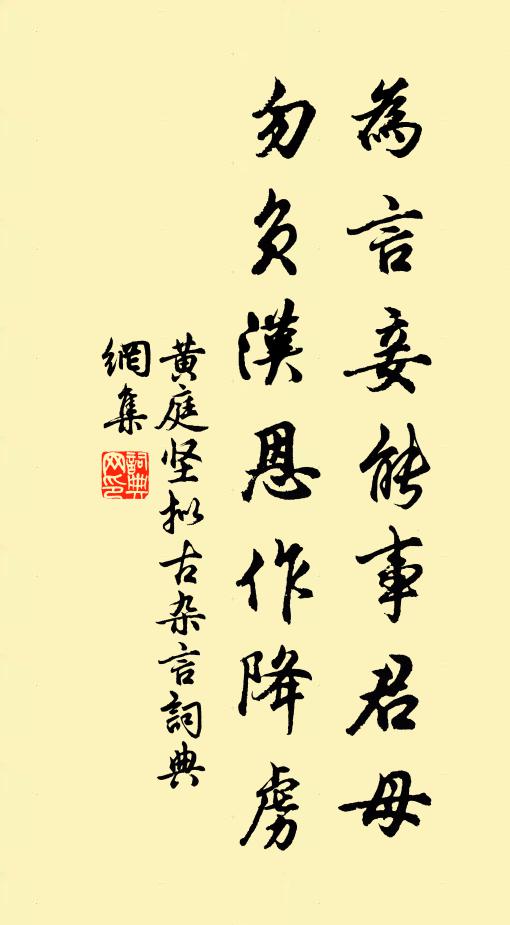 為言妾能事君母
勿負漢恩作降虜
黄庭坚拟古杂言詞典
網集
詞典
网印